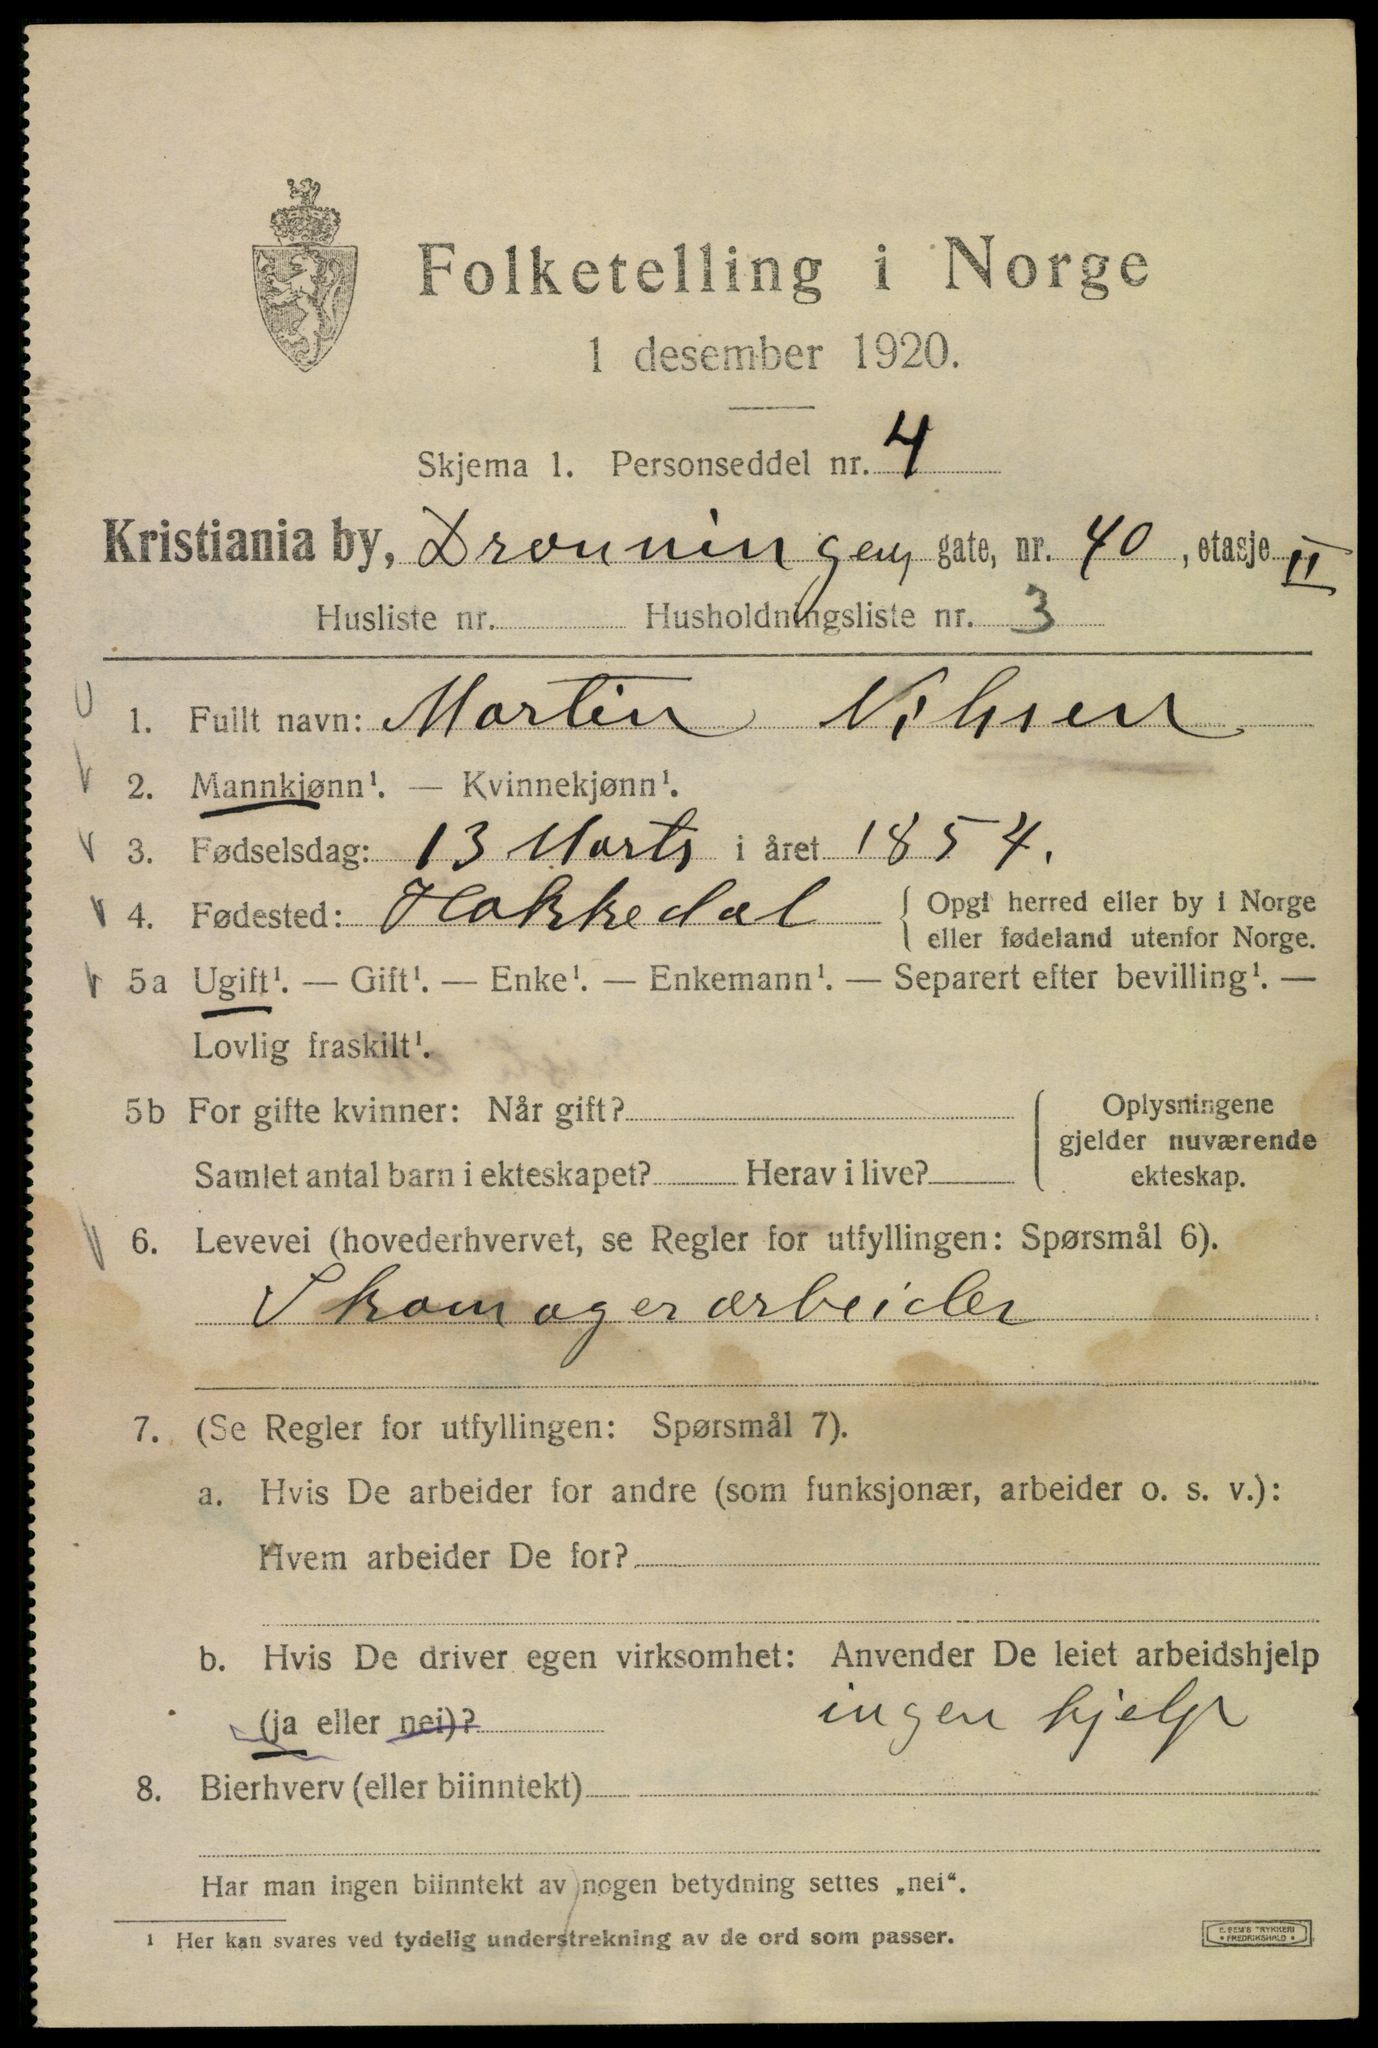 Folketelling i Norge
1 desember 1920.
Skjema 1. Personseddel nr. 4
Kristiania by, Dronningens gate, nr. 40, etasje II
Husliste nr. Husholdningsliste nr. 3
1. Fullt navn: Martin Nilsen
2. Mannkjønn¹. — Kvinnekjønn¹.
3. Fødselsdag: 13 Marts i året 1854.
4. Fødested: Hakkedal { Opgi herred eller by i Norge
eller fødeland utenfor Norge.
5a Ugift¹. — Gift¹. — Enke¹. — Enkemann¹. — Separert efter bevilling¹. —
Lovlig fraskilt¹.
5b For gifte kvinner: Når gift? { Oplysningene
gjelder nuværende
Samlet antal barn i ekteskapet? Herav i live? ekteskap.
6. Levevei (hovederhvervet, se Regler for utfyllingen: Spørsmål 6).
Skomagerarbeider
7. (Se Regler for utfyllingen: Spørsmål 7).
a. Hvis De arbeider for andre (som funksjonær, arbeider o. s. v.):
Hvem arbeider De for?
b. Hvis De driver egen virksomhet: Anvender De leiet arbeidshjelp
(ja eller nei)? ingen hjelp
8. Bierhverv (eller biinntekt)
Har man ingen biinntekt av nogen betydning settes „nei“.
¹ Her kan svares ved tydelig understrekning av de ord som passer.
E. SEM'S TRYKKERI
• FREDRIKSHALD •